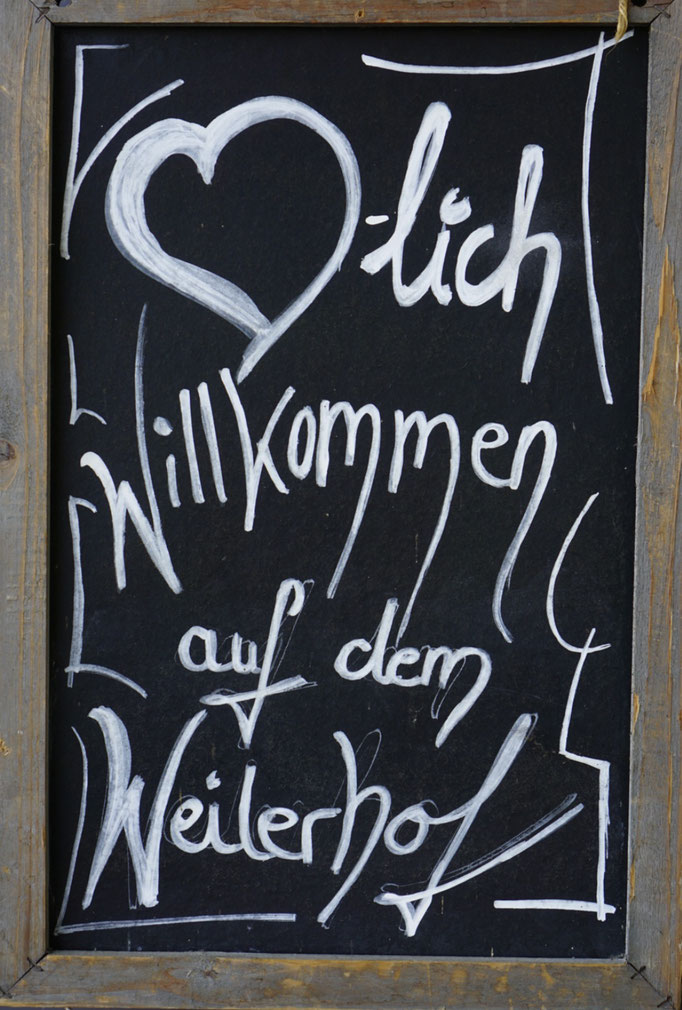 ♥-lich
Willkommen
auf dem
Weilerhof